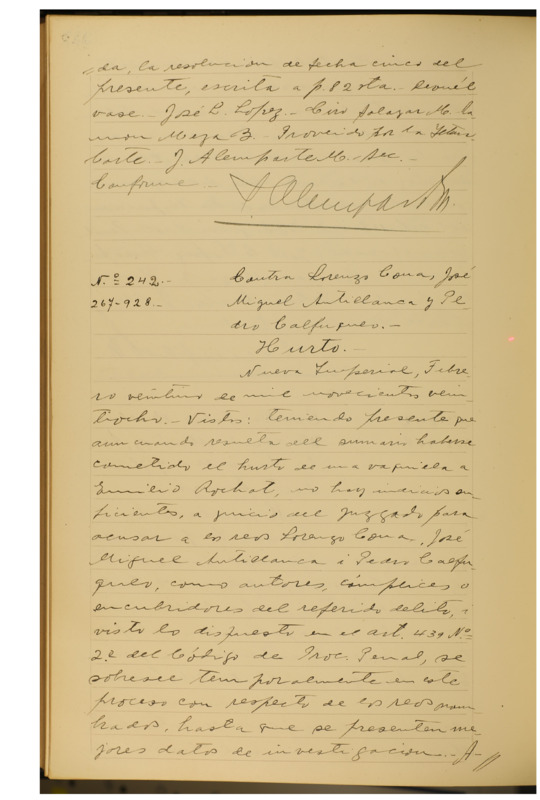 da, la resolucion de fecha cinco del
presente, escrita a f. 82 vta. - Devuél
vase - José L. López - Ciro Salazar M. - Ra
mon Meza B. - Proveido por la Iltma.
Corte. - J. Alemparte M. - Sec. -
Conforme -
J Alemparte M.
N.º 242.-
267-928.-
Contra Lorenzo Cona, José
Miguel Antillanca y Pe
dro Calfuqueo. -
Hurto. -
Nueva Imperial, Febre
ro veintiuno de mil novecientos vein
tiocho. - Vistos: teniendo presente que
aun cuando resulta del sumario haberse
cometido el hurto de una vaquilla a
Emilio Rochat, no hay indicios su
ficientes, a juicio del juzgado para
acusar a los reos Lorenzo Cona, José
Miguel Antillanca i Pedro Calfu
queo, como autores, cómplices o
encubridores del referido delito, i
visto lo dispuesto en el art. 439 Nº
2º del Código de Proc. Penal, se
sobresee temporalmente en este
proceso con respecto de los reos nom
brados, hasta que se presenten me
jores datos de investigacion. - A-